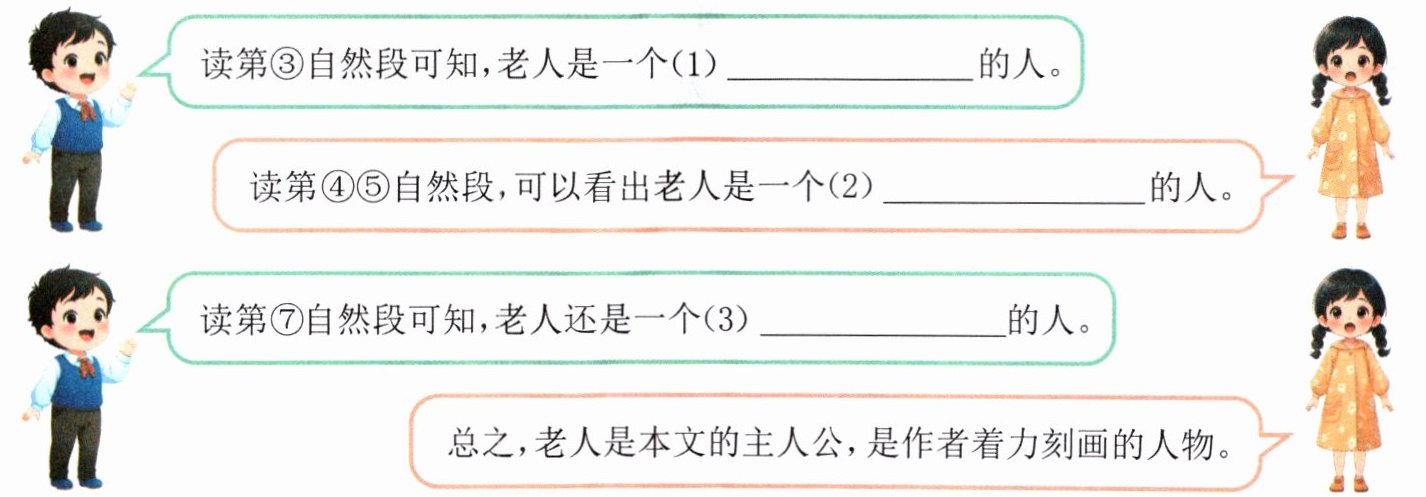 读第③自然段可知,老人是一个(1)______________的人。
读第④⑤自然段,可以看出老人是一个(2)______________的人。
读第⑦自然段可知,老人还是一个(3)______________的人。
总之,老人是本文的主人公,是作者着力刻画的人物。